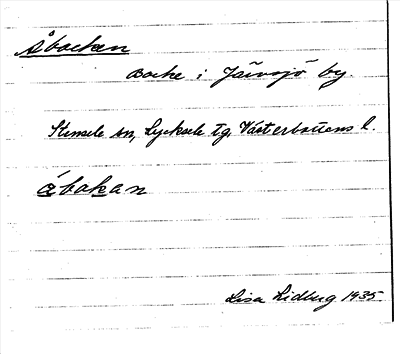 Åbacken
Backe i Järvsjö by.
Stensele sn, Lycksele tg, Västerbottens l.
åbakan
Lisa Lidberg 1935.